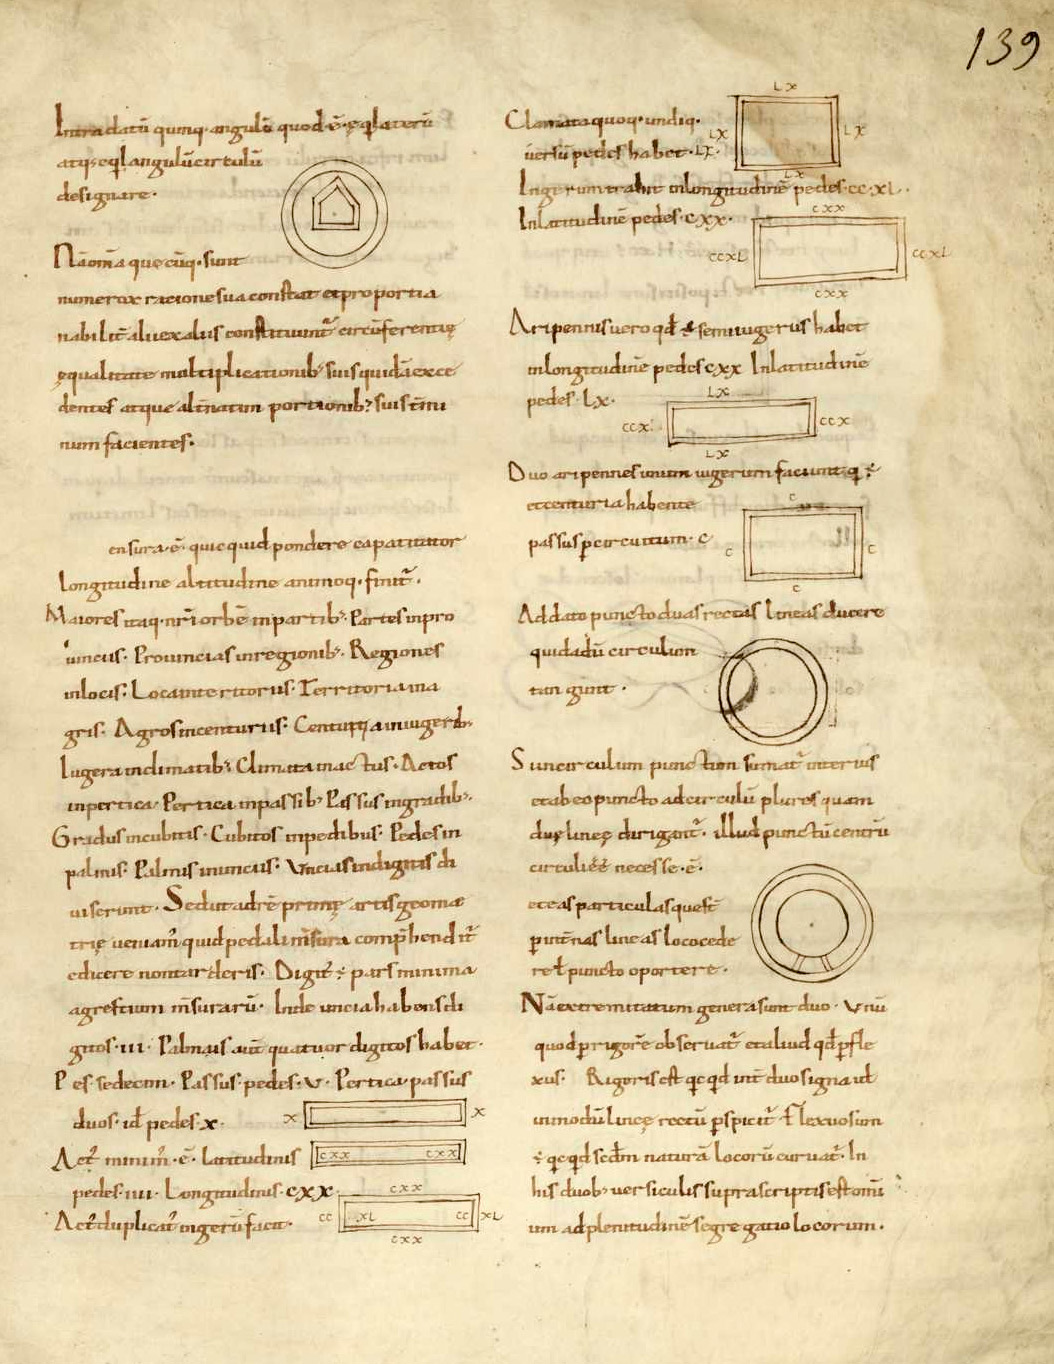 139
Intra datū quinq· angulū quod·ē· eq̨laterū
atq; eq̨langulū circulū
designare·
Nā om̄a quęcūq· sunt
numerox racione sua constat et proportia
nabilit̄ alii ex aliis constituunt̄ circūferentię
ęqualitate multiplicationib; suis quidā exce
dentes atque alt̄natim portionib; suis t̄mi
num facientes·
ensura·ē· quicquid pondere capatitator
longitudine altitudine animoq· finit̄·
Maiores itaq· nr̄i orbē in partib;· Partes in pro
uincus· Prouincias in regionib;· Regiones
in locis: Loca in territoriis· Territoria in a
gris· Agros in centuriis· Centuria in iugerib;·
Iugera in climatib;· Climata in actus· Actos
in pertica· Pertica in passib; Passus in gradib;·
Gradus in cubitis· Cubitos in pedibus· Pedes in
palmis· Palmis in unciis: Vncias in digitis di
uiserunt· Sed ut ad rē primę artis geomæ
trię ueniam̄ quid pedali m̄sura comp̄hendit̄
edicere non tarderis· Digit̄ ÷ pars minima
agrestium m̄surarū· Inde uncia habens di
gitos·iii· Palmus aut̄ quatuor digitos habet·
Pes· sedecim· Passus· pedes·v· Pertica passus
duos· id̄ pedes·x·
x x
Act̄ minim̄·ē· Latitudinis
cxx cxx
pedes·iiii· Longitudinis·cxx·
cxx
Act̄ duplicat̄ iugerū facit·
cc xl cc xl
cxx
Climata quoq· undiq·
uersū pedes habet·lx·
lx
lx lx
lx
Iugerum trahit in longitudinē pedes·cc·xl·
In latitudinē pedes·cxx·
cxx
ccxl ccxl
cxx
Aripennis uero qd̄ ÷ semiiugerus habet
in longitudinē pedes cxx In latitudinē
pedes·lx·
lx
ccx ccx
lx
Duo aripennes unum iugerum faciunt q̨ ÷
et centuria habente
passus p̄ circuitum· c
c
c c
c
Ad dato puncto duas rectas lineas ducere
qui dadū circulum
tangunt·
Si in circulum punctum sumat̄ interius
et ab eo puncto ad circulū plures quam
duę lineę dirigant̄· illud punctū centrū
circuli eē̄ necesse·ē·
et eas particulas quę st̄
p̄ int̄nas lineas loco cede
re t̄ puncto oportere·
Nā extremitatum genera sunt duo· Vnū
quod p̄ rigorē obseruat̄ et aliud qd̄ p̄ fle
xus· Rigoris est q̨cq̨d int̄ duo signa uel̄
in modū lineę rectū p̄spicit̄ Flexuosum
÷ q̨cq̨d scd̄m naturā locorū curuat̄· In
his duob; uersiculis suprascriptis est om̄i
um ad plenitudinē segregatio locorum·